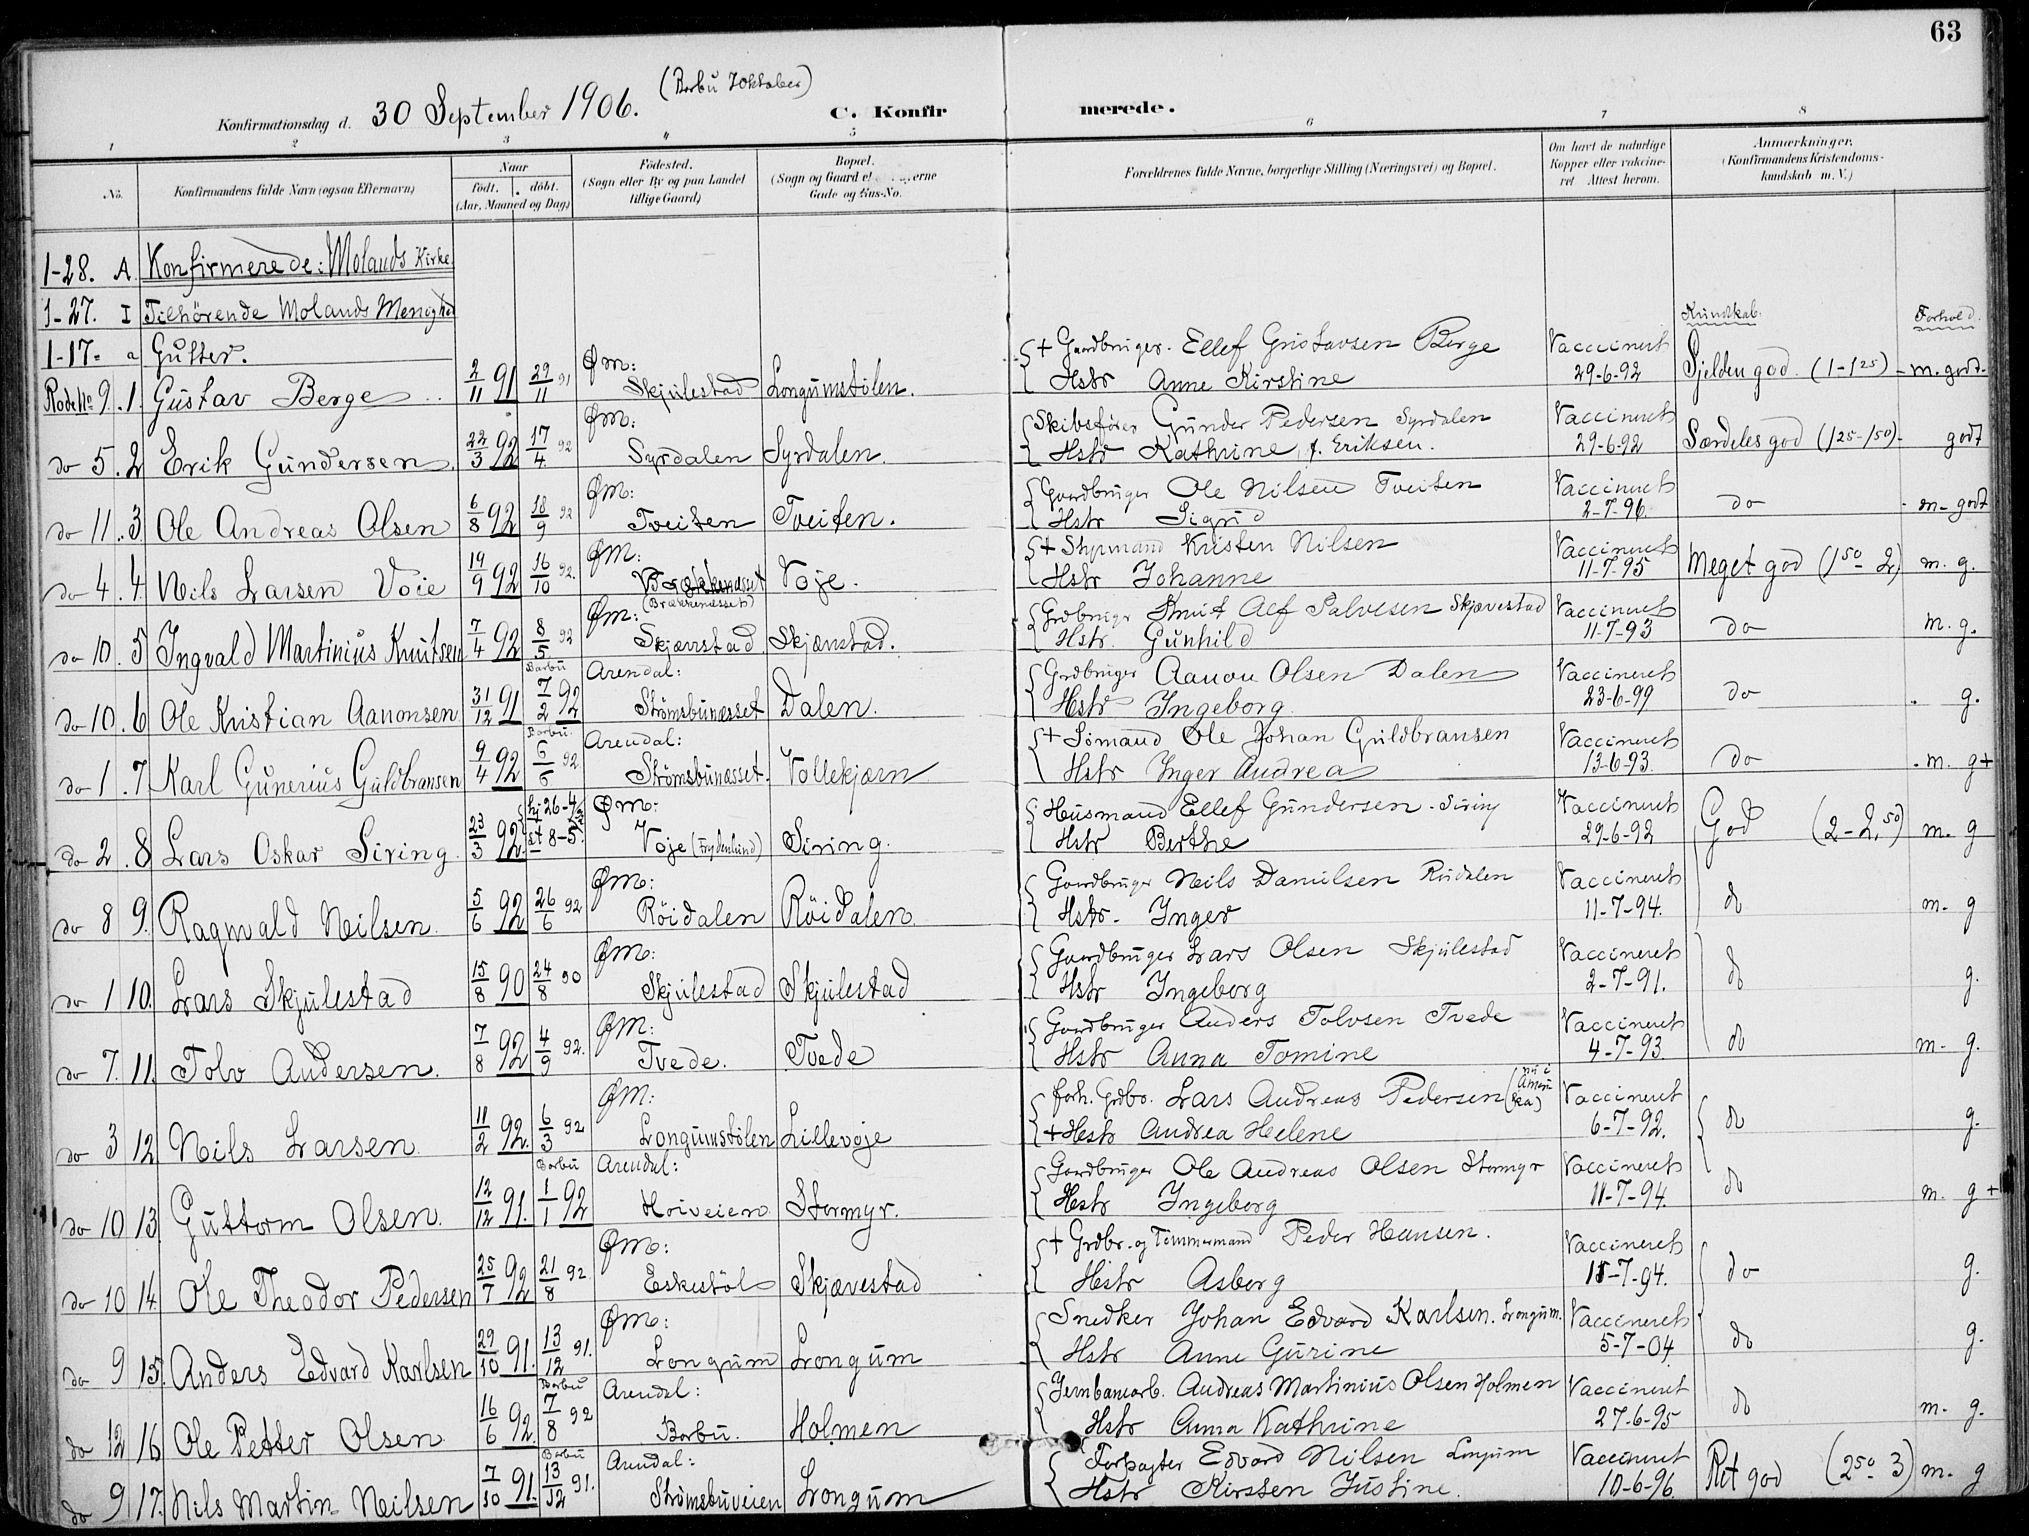 63
(Barbu 7 Oktober)
Konfirmationsdag d. 30 September 1906.
C. Konfirmerede.
1 2 3 4 5 6 7 8
No.
Konfirmandens fulde Navn (ogsaa Efternavn)
Naar
födt. döbt.
(Aar, Maaned og Dag)
Födested.
(Sogn eller By og paa Landet
tillige Gaard)
Bopæl.
(Sogn og Gaard
Gade og Hus-No.
Forældrenes fulde Navne, borgerlige Stilling (Næringsvei) og Bopæl.
Om havt de naturlige
Kopper eller vakcine-
ret Attest herom.
Anmærkninger.
(Konfirmandens Kristendoms-
kundskab m. V.)
1-28. A. Konfirmerede: Molands Kirke.
1-27. I Tilhörende Molands Menighed
1-17 a Gutter.
Kundskab. Forhold.
Rode No 9 . 1. Gustav Berge 2/11 91 29/11 91 ØM: Skjulestad Longumstölen. + Gaardbruger Ellef Gustavsen Berge Hstr Anne Kirstine Vaccineret 29-6-92 Sjelden god (1-1 25) - m. godt
do 5 . 2 Erik Gundersen 22/3 92 17/4 92 ØM: Syrdalen Syrdalen. Skibsförer Gunder Pedersen Syrdalen Hstr Kathrine, f. Eriksen. Vaccineret 29-6-92 Særdeles god (1 25-1 50) - godt
do 11 . 3 Ole Andreas Olsen 6/8 92 18/9 92 ØM: Tveiten Tveiten. Gaardbruger Ole Nilsen Tveiten Hstr Sigrid Vaccineret 2-7-96 do m- godt
do 4 . 4. Nils Larsen Voie 19/9 92 16/10 92. ØM: (Brækkenæsset) Voje. + Styrmand Kristen Nilsen Hstr Johanne Vaccineret 11-7-95 Meget god (1 50 2) m. g.
do 10 . 5 Ingvald Martinius Knutsen 7/4 92 8/5 92 ØM: Skjævestad Skjævestad. Grdbruger Knut Alf Salvesen Skjævestad Hstr. Gunhild Vaccineret 11-7-93 do m. g.
do 10 . 6 Ole Kristian Aanonsen 31/12 91 Barbu 7/2 92 Arendal: Strömsbunæsset Dalen. Grdbruger Aanon Olsen Dalen Hstr Ingeborg Vaccineret 23-6-99 do g.
do 1 . 7 Karl Gunerius Guldbransen 9/4 92 Barbu. 6/6 92 Arendal: Strömsbunæsset. Vollekjærn + Sömand Ole Johan Guldbransen Hstr Inger Andrea Vaccineret 13-6-93. do m. g+
do 2 . 8 Lars Oskar Siring 23/3 92. hj 26-4 st 8-5. ØM: Voje (Frydenlund) Siring. Husmand Ellef Gundersen Siring Hstr Berthe Vaccineret 29-6-92 God (2-2,50) m. g
do 8 9. Ragnvald Nilsen. 5/6 92 26/6 92 ØM: Röidalen Röidalen. Gaardbruger Nils Danielsen Hstr. Inger Vaccineret 11-7-94. do m- g
do 1 10. Lars Skjulestad 15/8 90 24/8 90 ØM: Skjulestad Skjulestad Gaardbruger Lars Olsen Skjulestad Hstr Ingeborg Vaccineret 2-7-91. do g.
do 7. 11. Tolv Andersen. 7/8 92 4/9 92. ØM: Tvede. Tvede Gaardbruger Anders Tolvsen Tvede Hstr Anna Tomine Vaccineret 4-7-93 do m- g.
do 3 12 Nils Larsen 11/2 92. 6/3 92 ØM: Longumstölen Lillevoje forh. Grdbr. Lars Andreas Pedersen (nu i Amerika) + Hstr Andrea Helene Vaccineret 6-7-92. do g.
do 10 13 Guttorm Olsen. 12/12 91. Barbu 1/1 92 Arendal: Hoiveien Stormyr. Gaardbruger Ole Andreas Olsen Stormyr Hstr Ingeborg Vaccineret 11-7-94. do m. g +
do 10 14 Ole Theodor Pedersen 25/7 92 21/8 92. ØM: Eskestöl Skjævestad + Grdbr. og Tömmermand Peder Hansen. Hstr Asberg Vaccineret 11-7-94. do g.
do 9 15. Anders Edvard Karlsen 29/10 91. 13/12 91. ØM: Longum Longum Snedker Johan Edvard Karlsen. Longum. Hstr Anne Gurine Vaccineret 5-7-04 do g.
do 12 16 Ole Petter Olsen 16/6 92. Barbu 7/8 92 Arendal: Barbu. Holmen Jernbanearb. Andreas Martinius Olsen Holmen Hstr Anna Kathrine Vaccineret 27-6-95 do m- g.
do 9 17. Nils Martin Neilsen 7/10 91. Barbu 13/12 91. Arendal: Strömsbuveien Longum Forpagter Edvard Nilsen Longum Hstr Kirsten Justine. Vaccineret 10-6-96. Ret god (2 50 3) m. g